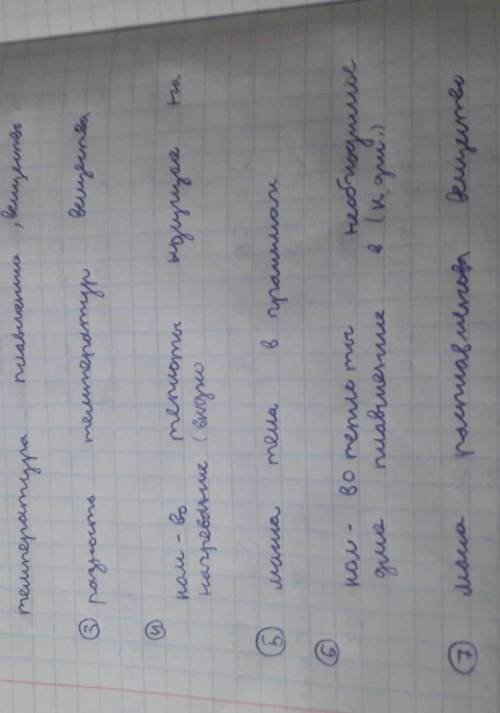 температура плавления, вещества
③ разность температур вещества
④ кол-во теплоты идущее на
нагревание (
⑤ масса тела в граммах
⑥ кол-во теплоты необходимые
для плавление в (к. дж.)
⑦ масса расплавленова вещество